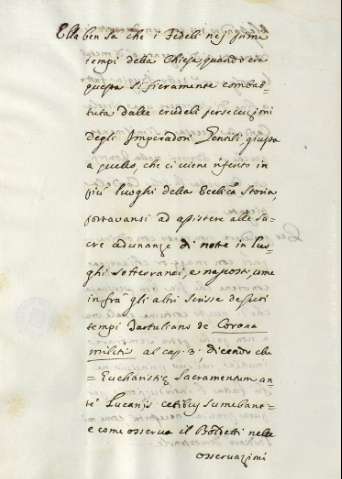 Ella ben sa che i Fedeli nei primi
tempi della Chiesa, quando era
questa sì fieramente combat-
tuta dalle crudeli persecuzioni
degli Imperadori Gentili, giusta
a quello, che ci viene riferito in
più luoghi della Ecclica Storia,
portavansi ad assistere alle Sa-
cre adunanze di notte in luo-
ghi sotterranei, e nascosti, come
infrà gli altri scrisse de suoi
tempi Tertuliano de Corona
militis al cap. 3, dicendo che
= Eucharistię Sacramentum an-
te Lucanis cetibus sumebant =
e come osserva il Boldetti nelle
osservazioni